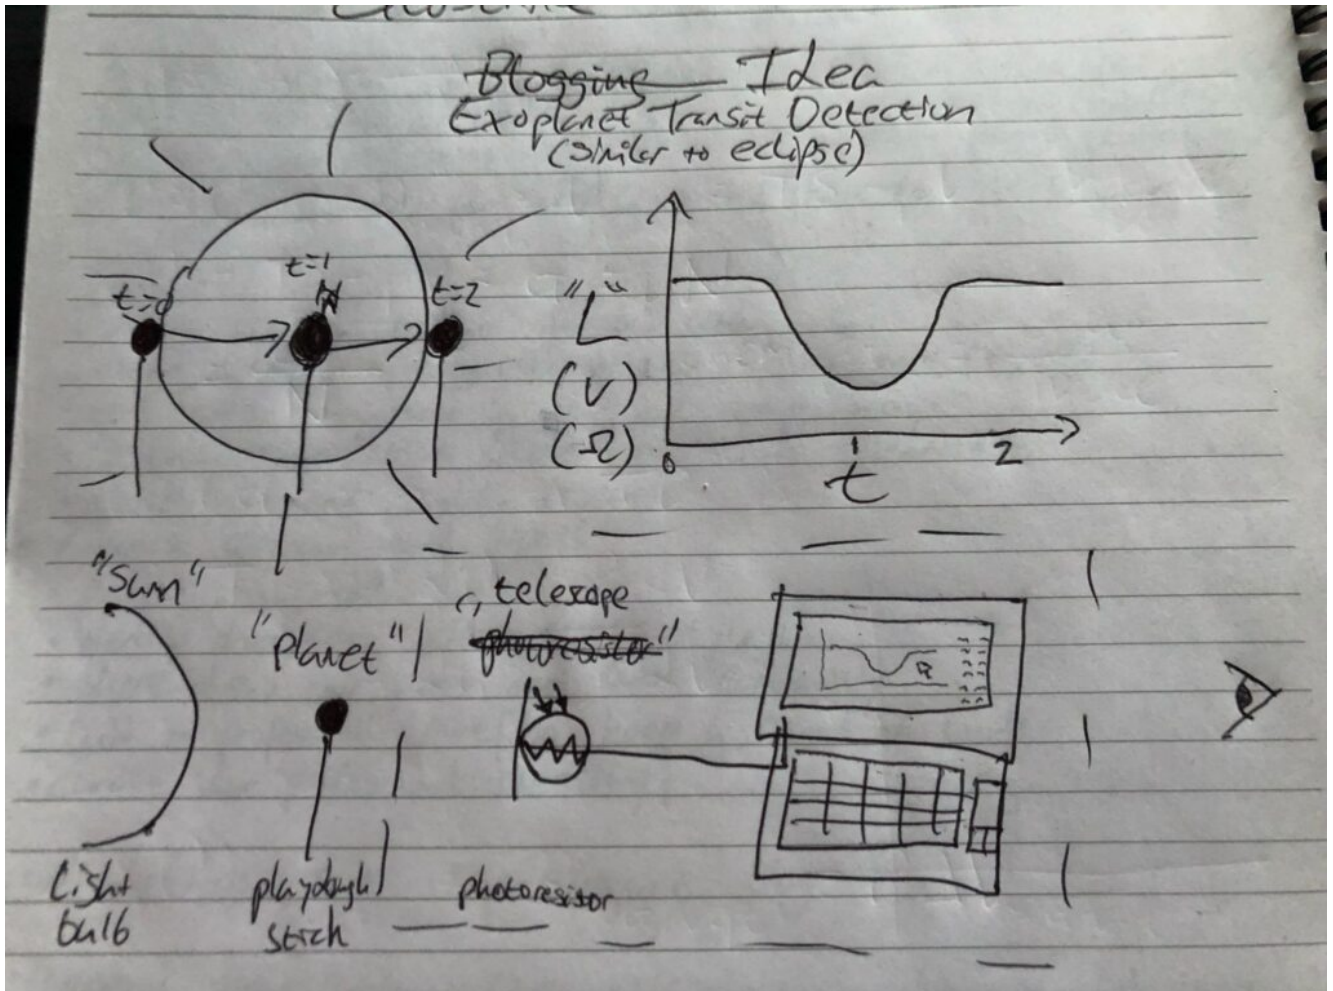 Blogging Idea
Exoplanet Transit Detection
(similar to eclipse)
t=0
t=1
t=2
"L"
(V)
(Ω)
0
1
2
t
"Sun"
"Planet"
"telescope
photoresistor"
Light
bulb
playdough
stick
photoresistor